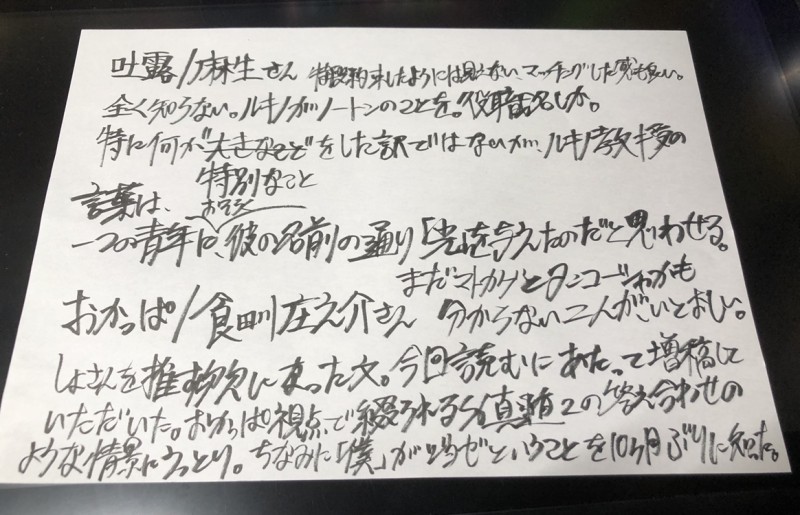 吐露/麻生さん 特段約束したようには見えない マッチングした感も良い。
全く知らない。ルキノがノートンのことを。役職名しか。
特に何が大きなことをした訳ではないが、ルキノ教授の
特別なこと
言葉は、
一つの青年に、彼の名前の通り「光」を与えたのだと思わせる。
まだマトカゲとタンコーフかも
おかっぱ/食田川庄之介さん 分からない二人がいとおしい。
しょさんを推す次に至った文。今回読むにあたって増稿して
いただいた。おかっぱ視点で綴られる 真道2の答え合わせの
ような情景にうっとり。ちなみに「僕」がジョゼということを10ヶ月ぶりに知った。